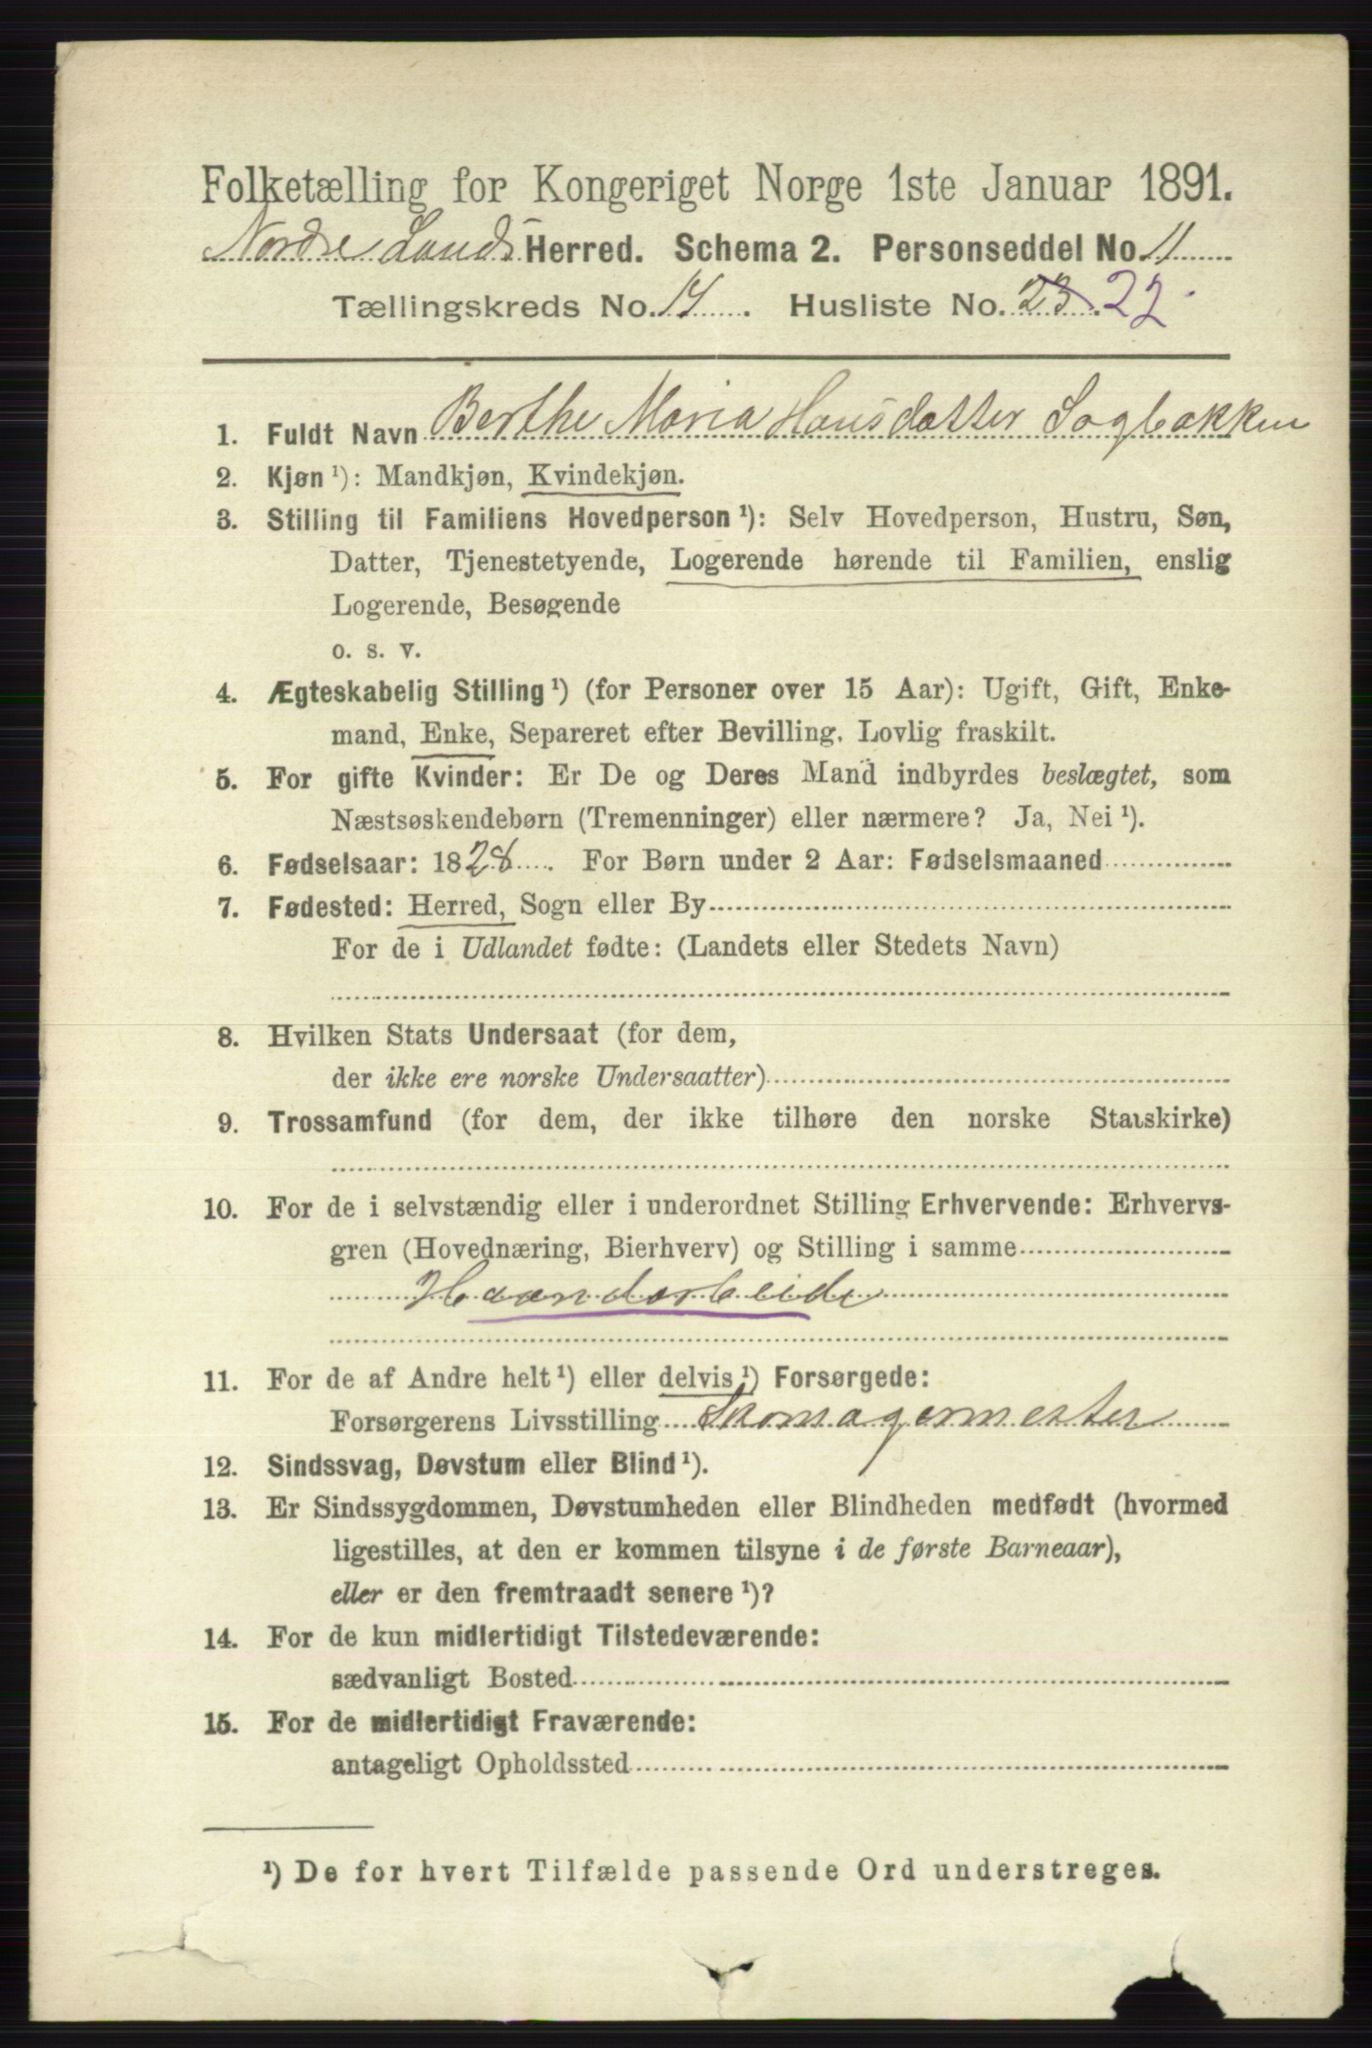 Folketælling for Kongeriget Norge 1ste Januar 1891.
Nordre Lands Herred. Schema 2. Personseddel No. 11
Tællingskreds No. 14. Husliste No. 23. 22
1. Fuldt Navn Berthe Maria Hansdatter Sagbakken
2. Kjøn ¹): Mandkjøn, Kvindekjøn.
3. Stilling til Familiens Hovedperson ¹): Selv Hovedperson, Hustru, Søn,
Datter, Tjenestetyende, Logerende hørende til Familien, enslig
Logerende, Besøgende
o. s. v.
4. Ægteskabelig Stilling ¹) (for Personer over 15 Aar): Ugift, Gift, Enke-
mand, Enke, Separeret efter Bevilling. Lovlig fraskilt.
5. For gifte Kvinder: Er De og Deres Mand indbyrdes beslægtet, som
Næstsøskendebørn (Tremenninger) eller nærmere? Ja, Nei ¹).
6. Fødselsaar: 1828. For Børn under 2 Aar: Fødselsmaaned
7. Fødested: Herred, Sogn eller By
For de i Udlandet fødte: (Landets eller Stedets Navn)
8. Hvilken Stats Undersaat (for dem,
der ikke ere norske Undersaatter)
9. Trossamfund (for dem, der ikke tilhøre den norske Statskirke)
10. For de i selvstændig eller i underordnet Stilling Erhvervende: Erhvervs-
gren (Hovednæring, Bierhverv) og Stilling i samme
Haandarbeide
11. For de af Andre helt ¹) eller delvis ¹) Forsørgede:
Forsørgerens Livsstilling Skomagermester
12. Sindssvag, Døvstum eller Blind ¹).
13. Er Sindssygdommen, Døvstumheden eller Blindheden medfødt (hvormed
ligestilles, at den er kommen tilsyne i de første Barneaar),
eller er den fremtraadt senere ¹)?
14. For de kun midlertidigt Tilstedeværende:
sædvanligt Bosted
15. For de midlertidigt Fraværende:
antageligt Opholdssted
¹) De for hvert Tilfælde passende Ord understreges.